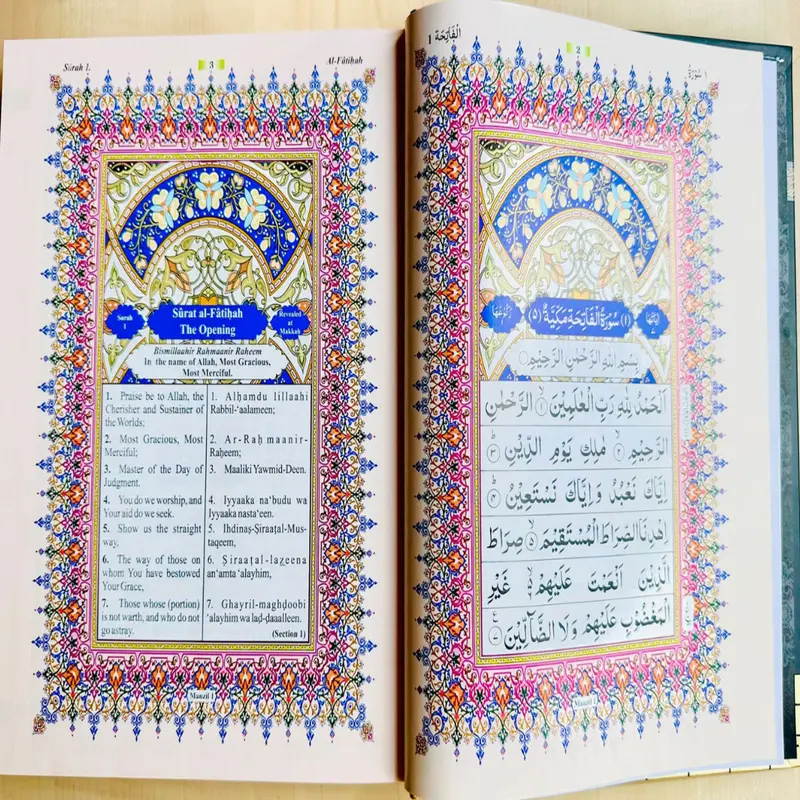 الْفَاتِحَة 1
2
١ سُوْرَةُ
(١) سُوْرَةُ الْفَاتِحَةِ مَكِّيَّةٌ (٥)
بِسْمِ اللهِ الرَّحْمٰنِ الرَّحِيْمِ
اَلْحَمْدُ لِلّٰهِ رَبِّ الْعٰلَمِيْنَ ۱ الرَّحْمٰنِ
الرَّحِيْمِ ۲ مٰلِكِ يَوْمِ الدِّيْنِ ۳
اِيَّاكَ نَعْبُدُ وَ اِيَّاكَ نَسْتَعِيْنُ ۴
اِهْدِنَا الصِّرَاطَ الْمُسْتَقِيْمَ ۵ صِرَاطَ
الَّذِيْنَ اَنْعَمْتَ عَلَيْهِمْ ۶ غَيْرِ
الْمَغْضُوْبِ عَلَيْهِمْ وَلَا الضَّآلِّيْنَ ۷
Manzil 1
Sûrah 1.
3
Al-Fâtiḥah
Surah
1
Sûrat al-Fâtiḥah
The Opening
Revealed
at
Makkah
Bismillaahir Rahmaanir Raheem
In the name of Allah, Most Gracious,
Most Merciful.
1. Praise be to Allah, the
Cherisher and Sustainer of
the Worlds;
2. Most Gracious, Most
Merciful;
3. Master of the Day of
Judgment.
4. You do we worship, and
Your aid do we seek.
5. Show us the straight
way,
6. The way of those on
whom You have bestowed
Your Grace,
7. Those whose (portion)
is not warth, and who do not
go astray.
1. Alḥamdu lillaahi
Rabbil-‘aalameen;
2. Ar-Raḥmaanir-
Raḥeem;
3. Maaliki Yawmid-Deen.
4. Iyyaaka na‘budu wa
Iyyaaka nasta‘een.
5. Ihdinaṣ-Ṣiraaṭal-Mus-
taqeem,
6. Ṣiraaṭal-laẓeena
an‘amta ‘alayhim,
7. Ghayril-maghḍoobi
‘alayhim wa laḍ-ḍaaalleen.
(Section 1)
Manzil 1